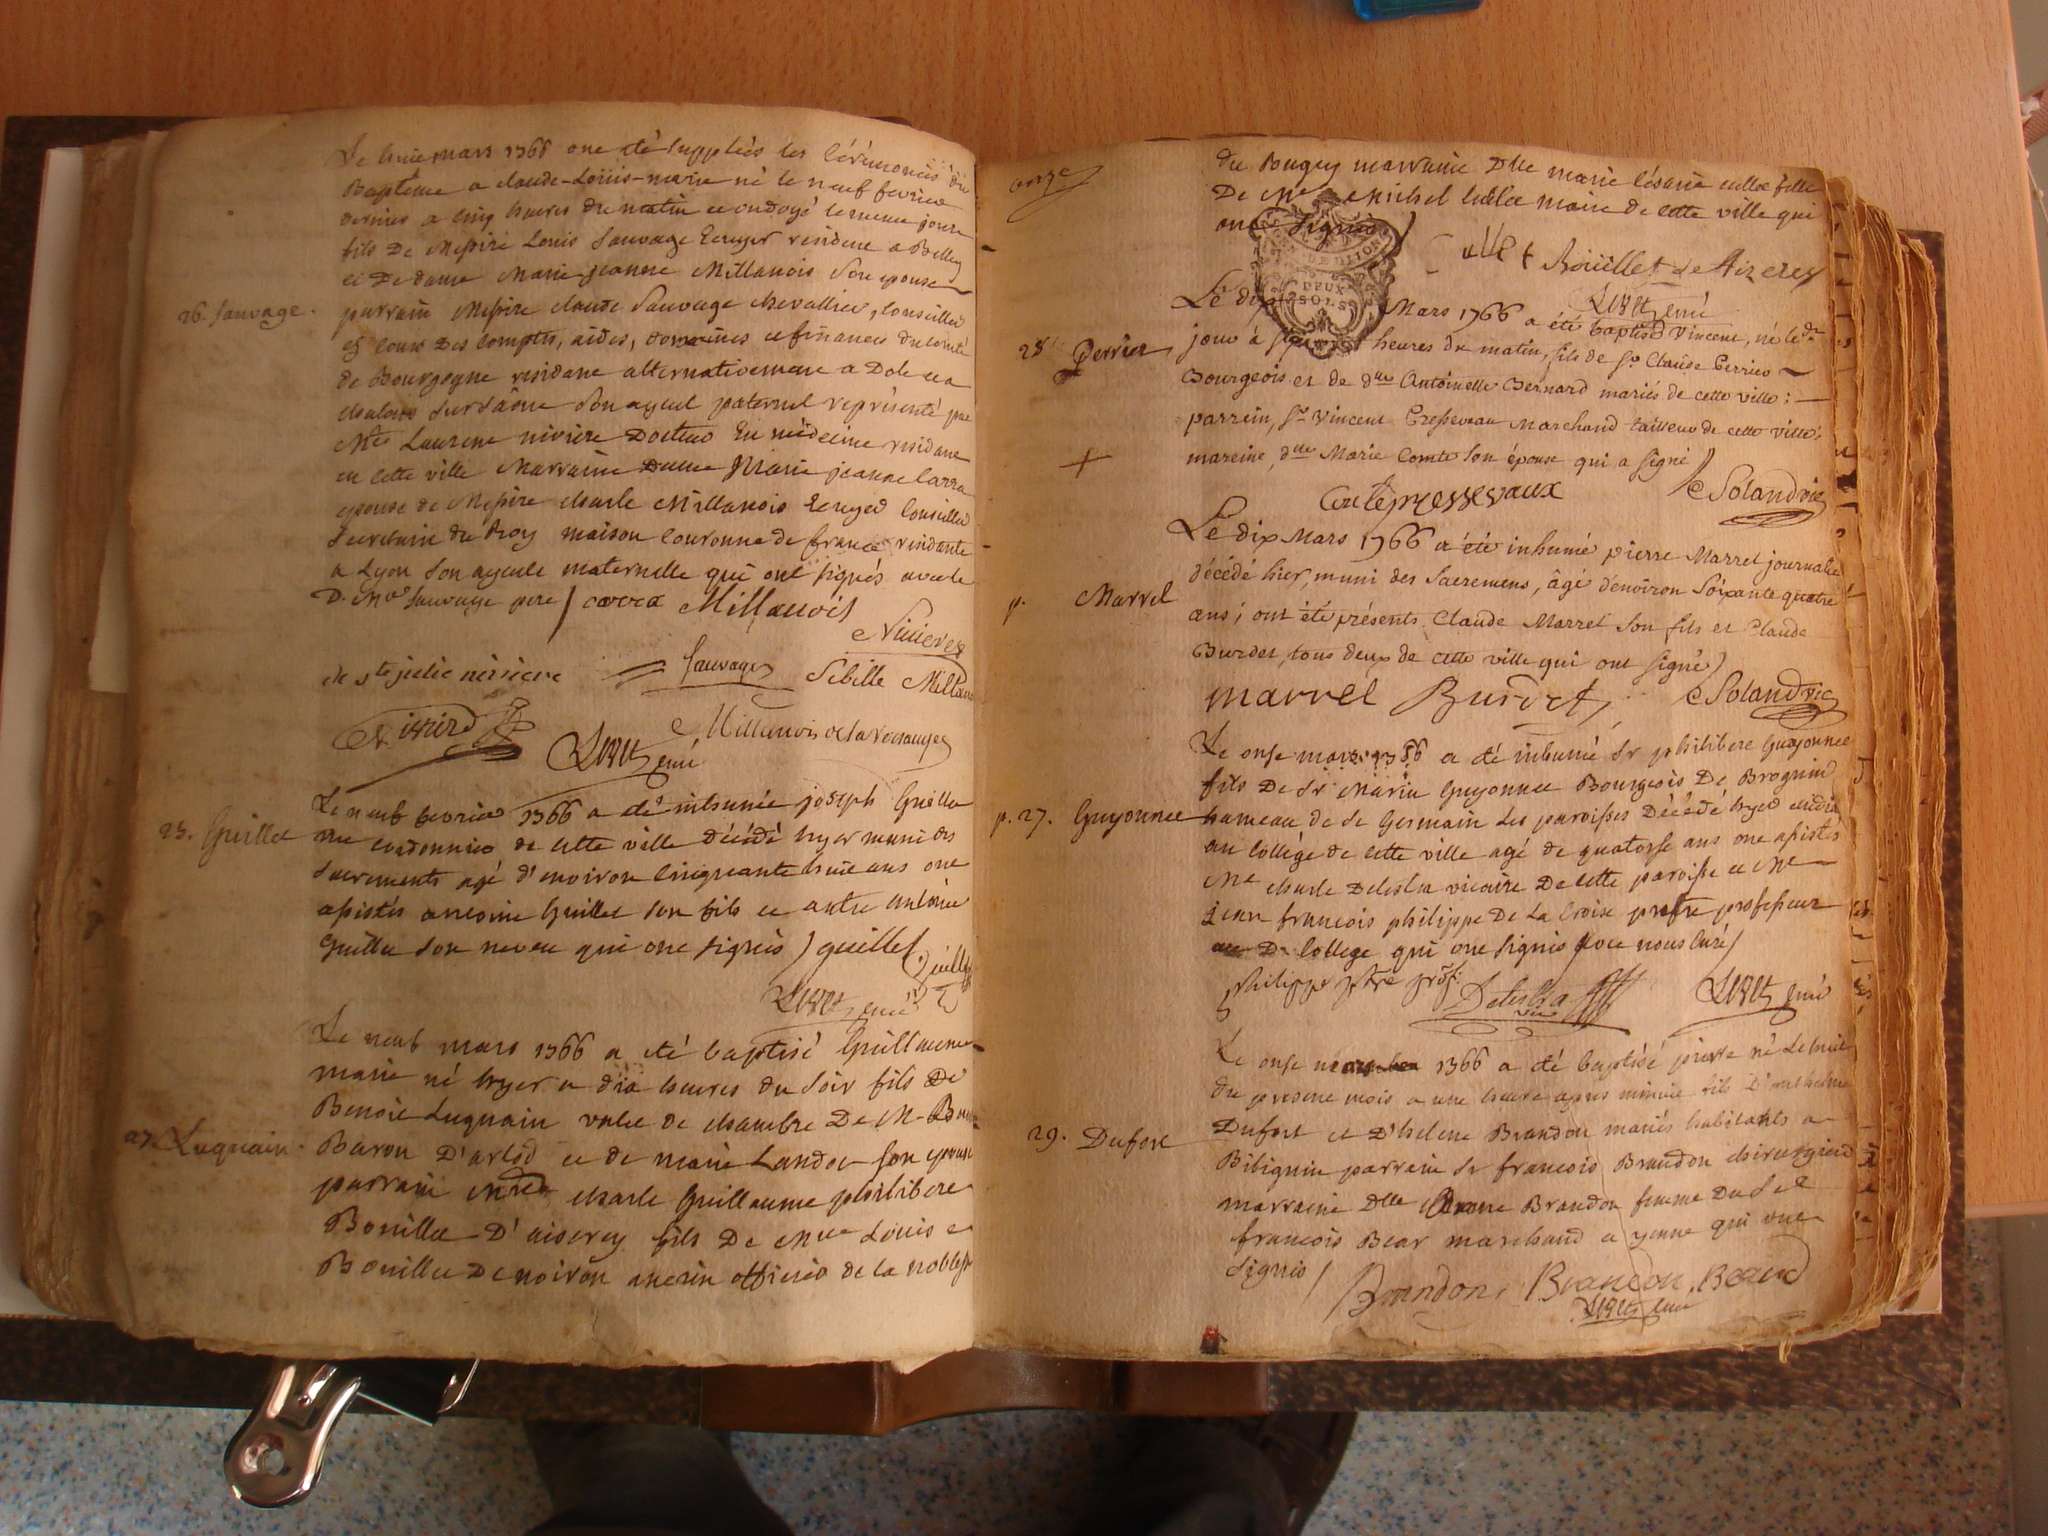 Le huit mars 1766 ont été suppleés les cérémonies du
Baptême a claude-Louis-marie né le neuf fevrier
dernier a cinq heures du matin et ondoyé le meme jour
fils De Messire Louis Sauvage Ecuyer resident a Belley
et De dame Marie-jeanne Millanois son epouse
26. Sauvage.
parrain Messire claude Sauvage chevallier, conseiller
en cour Des comptes, aides, domaines et finances du comté
de Bourgogne residant alternativement a Dole et a
chalons sur saône son ayeul paternel représenté par
Mre Laurent niviere Docteur En médecine residant
en cette ville Marraine Dame Marie jeanne Carra
epouse de Messire charle Millanois Ecuyer conseiller
Secretaire du Roy maison couronne de france residante
a Lyon son ayeule maternelle qui ont signés avec le
D. Mre Sauvage pere / carra Millanois
Nivieres
de ste julie niviere Sauvage Sibille Millanois
Millanois de la
curé
25. Guillet
Le neuf fevrier 1766 a été inhumé joseph Guillet
me cordonnier de cette ville décédé hyer muni des
sacrements agé d'environ cinquante huit ans ont
assistés antoine Guillet son fils et autre antoine
Guillet son neveu qui ont signés / guillet
Guillet
curé
Le neuf mars 1766 a été baptisé Guillaume
marie né hyer a dix heures du soir fils De
Benoit Luquain valet de chambre De M.
27. Luquain.
Baron D'arlod et de marie Landoz son epouse
parrain charle Guillaume philibert
Bouillet D'aiserey fils De Mre Louis
Bouillet De noiron ancien officier de la noblesse
onze
du Bugey marraine Dlle marie césarie cullet fille
De Mre Michel cullet maire de cette ville qui
ont signés /
cullet Boüillet de Aizerey
curé
DEUX
SOLS
28 Perrier
Le dix Mars 1766 a été baptisé Vincent, né le dt
jour à heures du matin, fils de Sr Claude Perrier
Bourgeois et de dlle Antoinette Bernard mariés de cette ville :
parrein, Sr Vincent Presseveau Marchand tailleur de cette ville ;
mareine, dlle Marie Comte son épouse qui a signé /
+
Comte pressevaux Soland vic
Le dix Mars 1766 a été inhumé pierre Marrel journalier
décédé hier, muni des Sacremens, âgé d'environ soixante quatre
p. Marrel
ans ; ont été présents Claude Marrel son fils et Claude
Burdet, tous deux de cette ville qui ont signé /
marrel Burdet Soland vic
Le onse mars 1766 a été inhumé Sr philibert Guyonnet
fils De Sr Marin Guyonnet Bourgeois De Brognin
p. 27. Guyonnet
hameau de St Germain Les paroisses Décédé hyer
au collège de cette ville agé de quatorse ans ont assistés
Mre charle Delestra vicaire De cette paroisse et Mre
jean francois philippe De La Croix pretre professeur
au D. College qui ont signés avec nous curé /
philippe ptre prof. Delestra vic curé
Le onse 1766 a été baptisé pierre né Le huit
du present mois a une heure apres minuit fils D'anthelme
29. Dufort
Dufort et D'helene Brandon mariés habitants a
Bilignin parrain Sr francois Brandon chirurgien
marraine Dlle Brandon femme Du Sr
francois Bear marchand a yenne qui ont
signés /
Brandon, Brandon, Beard
curé